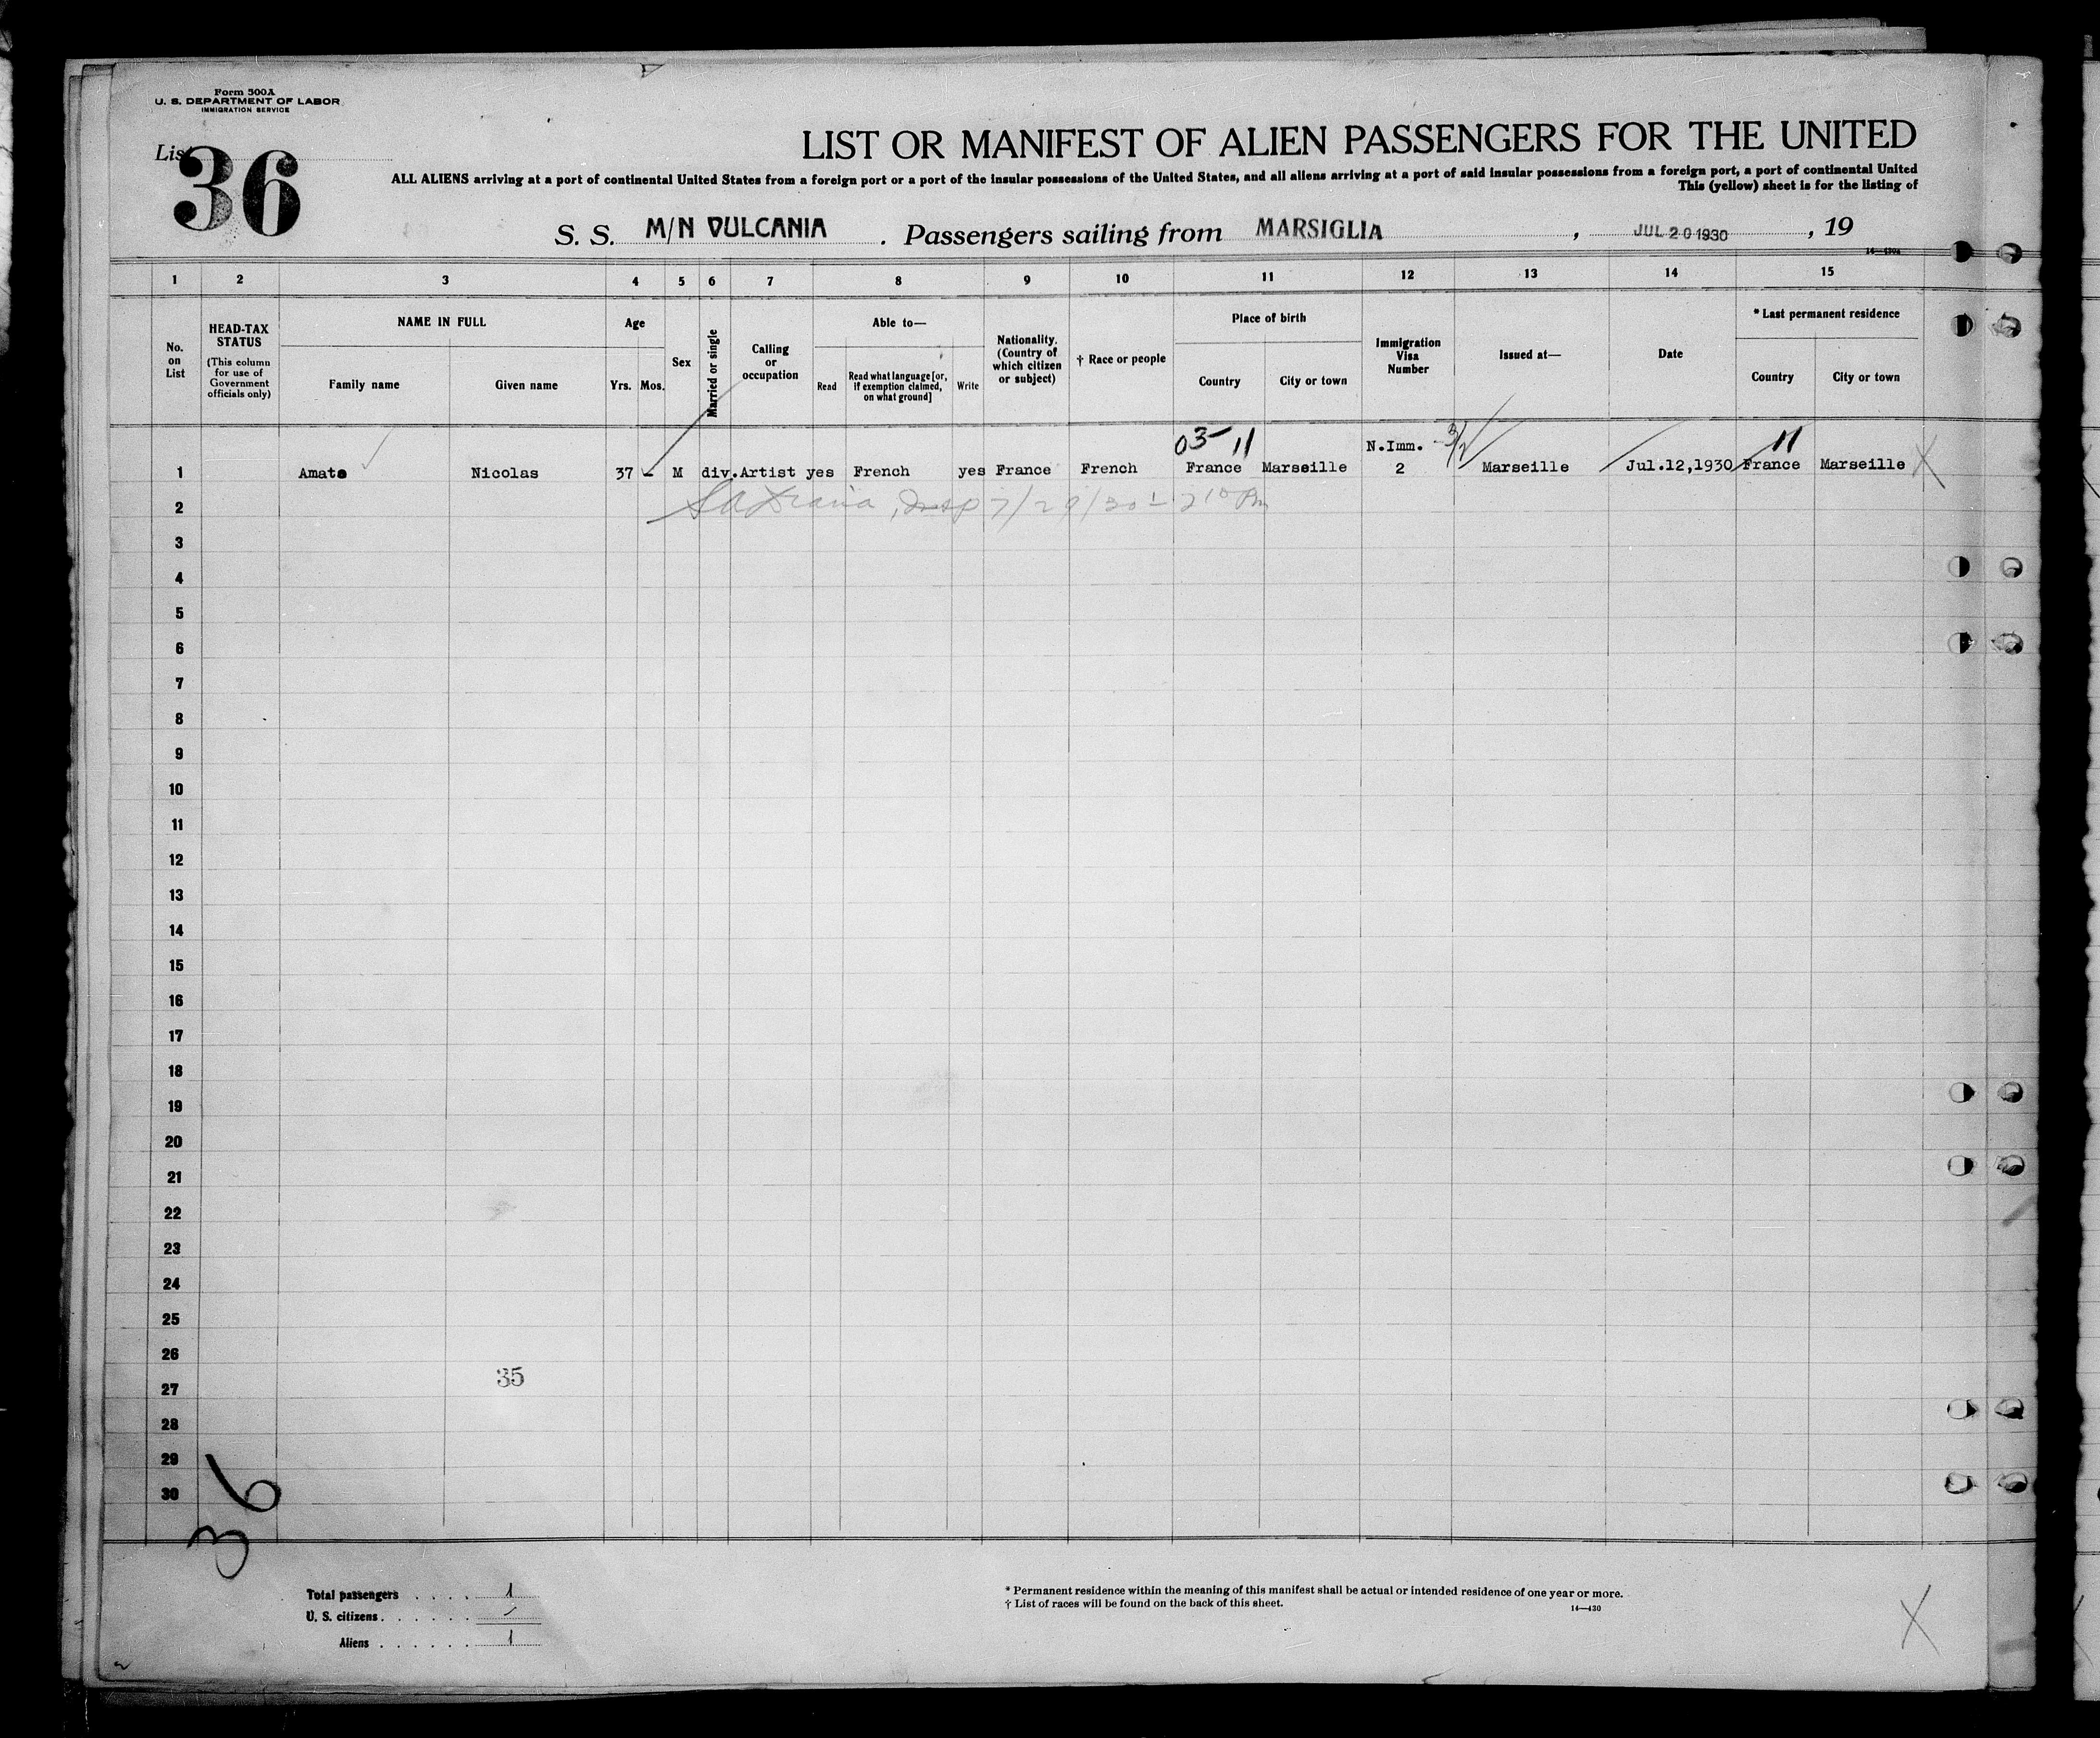 Form 500A
U. S. DEPARTMENT OF LABOR
IMMIGRATION SERVICE
List 36
LIST OR MANIFEST OF ALIEN PASSENGERS FOR THE UNITED
ALL ALIENS arriving at a port of continental United States from a foreign port or a port of the insular possessions of the United States, and all aliens arriving at a port of said insular possessions from a foreign port, a port of continental United
This (yellow) sheet is for the listing of
S. S. M/N VULCANIA . Passengers sailing from MARSIGLIA , JUL 20 1930 , 19
1 2 3 4 5 6 7 8 9 10 11 12 13 14 15
No. on List
HEAD-TAX STATUS
(This column for use of Government officials only)
NAME IN FULL
Family name Given name
Age
Yrs. Mos.
Sex
Married or single
Calling or occupation
Able to—
Read
Read what language [or, if exemption claimed, on what ground]
Write
Nationality. (Country of which citizen or subject)
† Race or people
Place of birth
Country City or town
Immigration Visa Number
Issued at—
Date
* Last permanent residence
Country City or town
03- 11 N.Imm. 3/2 11
1 Amato Nicolas 37 - M div. Artist yes French yes France French France Marseille 2 Marseille Jul.12,1930 France Marseille X
2 7/29/30
3
4
5
6
7
8
9
10
11
12
13
14
15
16
17
18
19
20
21
22
23
24
25
26
35
27
28
29
30
36
Total passengers . . . . 1
U. S. citizens . . . . . . -
Aliens . . . . . . 1
* Permanent residence within the meaning of this manifest shall be actual or intended residence of one year or more.
† List of races will be found on the back of this sheet.
14—430
X